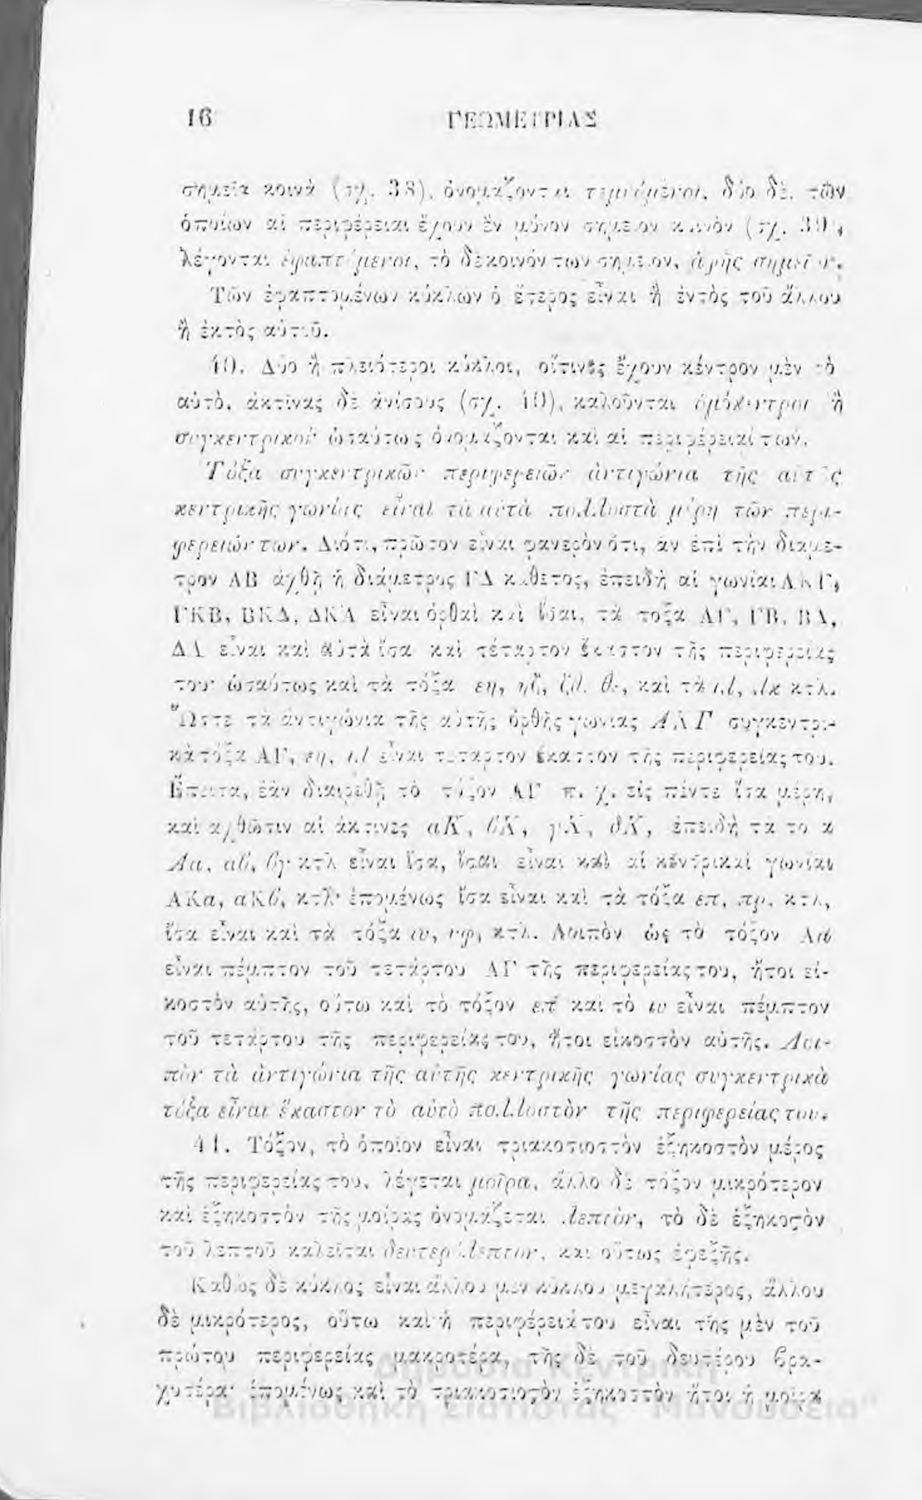 16 ΓΕΩΜΕΤΡΙΑΣ
σημεῖα κοινὰ (σχ. 38), ὀνομάζονται τεμνόμενοι, δύο δὲ, τῶν
ὁποίων αἱ περιφέρειαι ἔχουν ἓν μόνον σημεῖον κοινὸν (σχ. 39),
λέγονται ἐφαπτόμενοι, τὸ δὲ κοινόν των σημεῖον, ἁφῆς σημεῖον.
Τῶν ἐφαπτομένων κύκλων ὁ ἕτερος εἶναι ἢ ἐντὸς τοῦ ἄλλου
ἢ ἐκτὸς αὐτοῦ.
40. Δύο ἢ πλειότεροι κύκλοι, οἵτινες ἔχουν κέντρον μὲν τὸ
αὐτὸ, ἀκτῖνας δὲ ἀνίσους (σχ. 40), καλοῦνται ὁμόκεντροι ἢ
συγκεντρικοί· ὡσαύτως ὀνομάζονται καὶ αἱ περιφέρειαί των.
Τόξα συγκεντρικῶν περιφερειῶν ἀντιγώνια τῆς αὐτῆς
κεντρικῆς γωνίας εἶναι τὰ αὐτὰ πολλοστὰ μέρη τῶν περι-
φερειῶν των. Διότι, πρῶτον εἶναι φανερὸν ὅτι, ἂν ἐπὶ τὴν διάμε-
τρον ΑΒ ἀχθῇ ἡ διάμετρος ΓΔ κάθετος, ἐπειδὴ αἱ γωνίαι ΑΚΓ,
ΓΚΒ, ΒΚΔ, ΔΚΑ εἶναι ὀρθαὶ καὶ ἴσαι, τὰ τόξα ΑΓ, ΓΒ, ΒΔ,
ΔΑ εἶναι καὶ αὐτὰ ἴσα καὶ τέταρτον ἕκαστον τῆς περιφερείας
του· ὡσαύτως καὶ τὰ τόξα εη, ηζ, ζθ, θε, καὶ τὰ ιλ, λκ κτλ.
Ὥστε τὰ ἀντιγώνια τῆς αὐτῆς ὀρθῆς γωνίας ΑΚΓ συγκεντρι-
κὰ τόξα ΑΓ, εη, ιλ εἶναι τέταρτον ἕκαστον τῆς περιφερείας του.
Ἔπειτα, ἐὰν διαιρεθῇ τὸ τόξον ΑΓ π. χ. εἰς πέντε ἴσα μέρη,
καὶ ἀχθῶσιν αἱ ἀκτῖνες αΚ, βΚ, γΚ, δΚ, ἐπειδὴ τὰ τόξα
Αα, αβ, βγ κτλ εἶναι ἴσα, ἴσαι εἶναι καὶ αἱ κεντρικαὶ γωνίαι
ΑΚα, αΚβ, κτλ· ἑπομένως ἴσα εἶναι καὶ τὰ τόξα επ, πρ, κτλ,
ἴσα εἶναι καὶ τὰ τόξα ιυ, υφ, κτλ. Λοιπὸν ὡς τὸ τόξον Αα
εἶναι πέμπτον τοῦ τετάρτου ΑΓ τῆς περιφερείας του, ἤτοι εἰ-
κοστὸν αὐτῆς, οὕτω καὶ τὸ τόξον επ καὶ τὸ ιυ εἶναι πέμπτον
τοῦ τετάρτου τῆς περιφερείας του, ἤτοι εἰκοστὸν αὐτῆς. Λοι-
πὸν τὰ ἀντιγώνια τῆς αὐτῆς κεντρικῆς γωνίας συγκεντρικὰ
τόξα εἶναι ἕκαστον τὸ αὐτὸ πολλοστὸν τῆς περιφερείας του.
41. Τόξον, τὸ ὁποῖον εἶναι τριακοσιοστὸν ἑξηκοστὸν μέρος
τῆς περιφερείας του, λέγεται μοῖρα, ἄλλο δὲ τόξον μικρότερον
καὶ ἑξηκοστὸν τῆς μοίρας ὀνομάζεται λεπτὸν, τὸ δὲ ἑξηκοϛὸν
τοῦ λεπτοῦ καλεῖται δευτερόλεπτον, καὶ οὕτως ἐφεξῆς.
Καθὼς δὲ κύκλος εἶναι ἄλλου μὲν κύκλου μεγαλήτερος, ἄλλου
δὲ μικρότερος, οὕτω καὶ ἡ περιφέρειά του εἶναι τῆς μὲν τοῦ
πρώτου περιφερείας μακροτέρα, τῆς δὲ τοῦ δευτέρου βρα-
χυτέρα· ἑπομένως καὶ τὸ τριακοσιοστὸν ἑξηκοστὸν ἤτοι ἡ μοῖρα
Δημόσια Κεντρική
Βιβλιοθήκη Σιάτιστας "Μανούσεια"